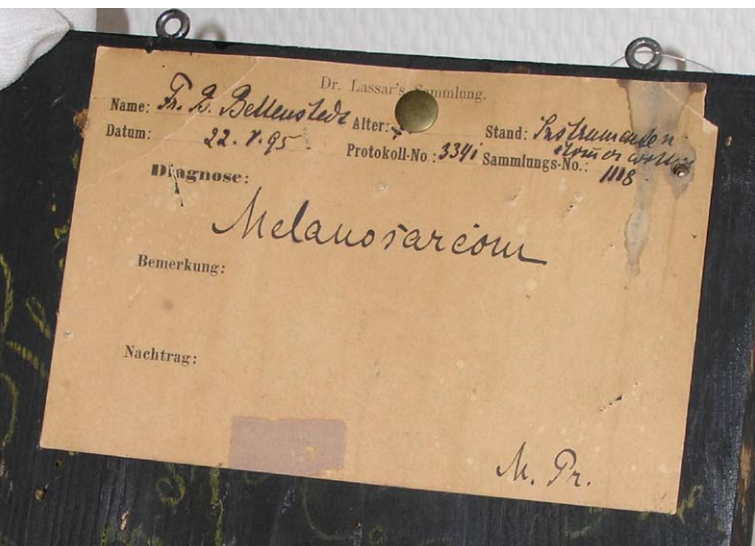 Dr. Lassar's Sammlung.
Name: Fr. B. Bellenstedt Alter: Stand: Instrumenten
Datum: 22. V. 95. Protokoll-No.: 3341 Sammlungs-No.: 1118
Diagnose:
Melanosarcom
Bemerkung:
Nachtrag:
M. Pr.